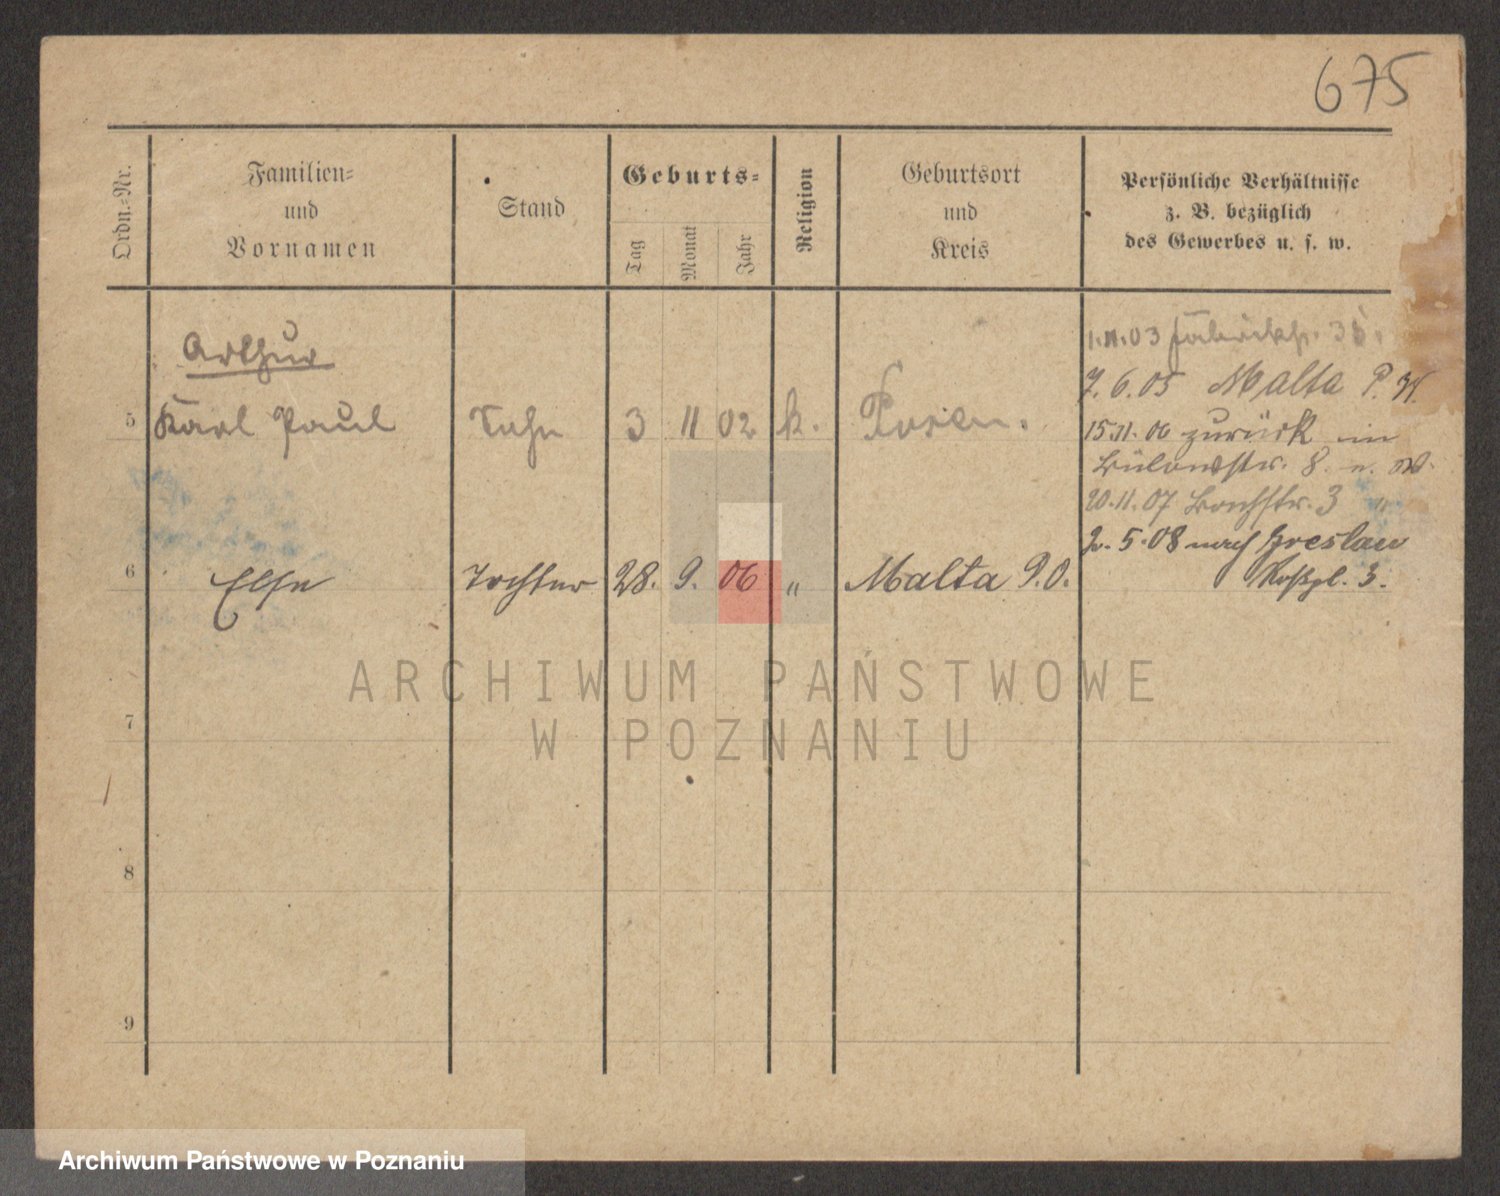 675
Ordn.-Nr.
Familien-
und
Vornamen
Stand
Geburts-
Tag
Monat
Jahr
Religion
Geburtsort
und
Kreis
Persönliche Verhältnisse
z. B. bezüglich
des Gewerbes u. s. w.
Arthur
5 Karl Paul Sohn 3 11 02 k. Posen.
1.11.03
7.6.05 Malta P. W.
15.11.06 zurück in
Bülowstr. 8.
20.11.07 3
2.5.08 nach Breslau
Roßpl. 3.
6 Else Tochter 28. 9. 06 " Malta P.O.
7
8
9
ARCHIWUM PAŃSTWOWE
W POZNANIU
Archiwum Państwowe w Poznaniu